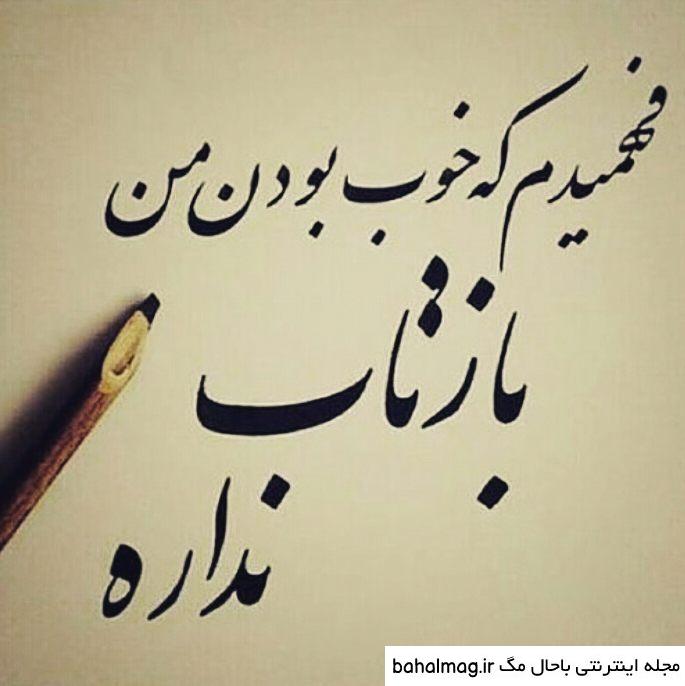 فهمیدم که خوب بودن من
بازتاب
نداره
مجله اینترنتی باحال مگ bahalmag.ir